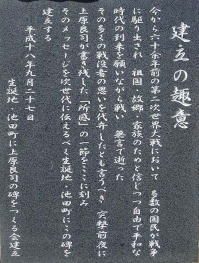 建立の趣意
今から六十余年前の第二次世界大戦において 多数の国民が戦争
に駆り出され 祖国・故郷・家族のためと信じつつ自由で平和な
時代の到来を願いながら戦い 無言で逝った
その多くの戦没者の思いを代弁したとも言うべき 突撃前夜に
上原良司が書き残した「所感」の一節をここに刻み
そのメッセージを次世代に伝えるべく生誕地・池田町にこの碑を
建立する
平成十八年九月二十七日
生誕地・池田町に上原良司の碑をつくる会建立